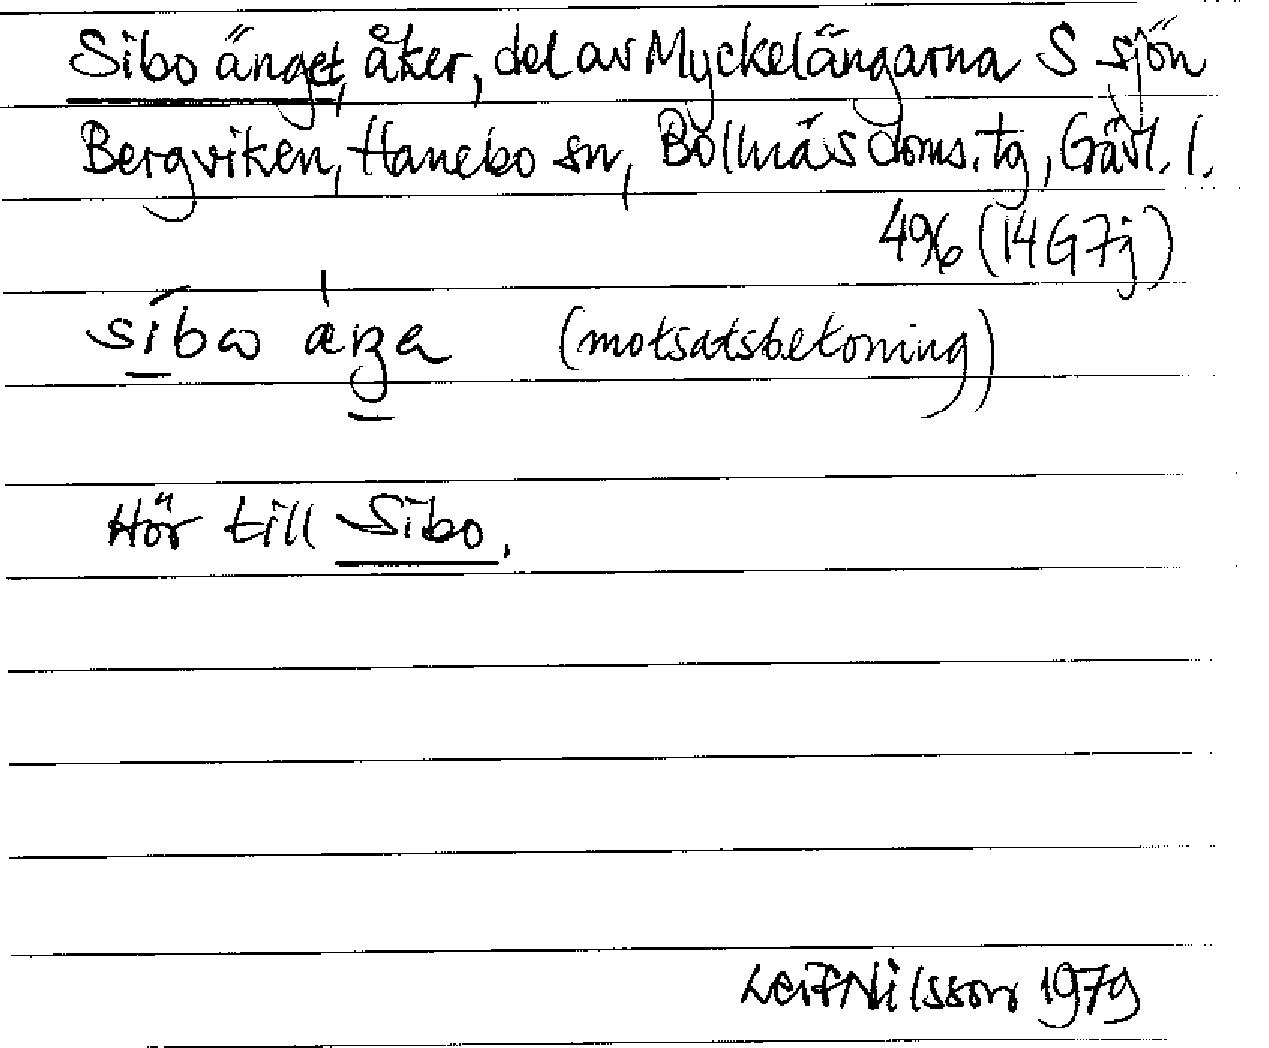 Sibo änget, åker, del av Myckelängarna S sjön
Bergviken, Hanebo sn, Bollnäs doms. tg, Gävl. l.
496 (14G7j)
(motsatsbetoning)
Hör till Sibo.
Leif Nilsson 1979